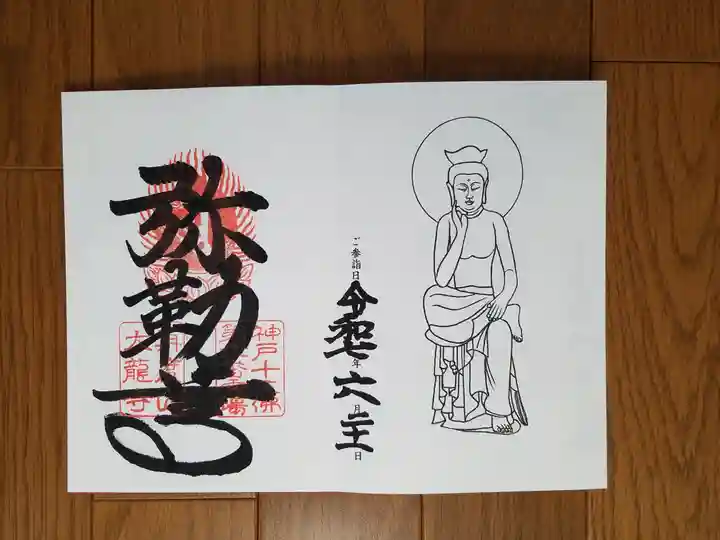 ご参詣日
令和七年六月二十一日
弥勒
神戸十三佛
大龍寺